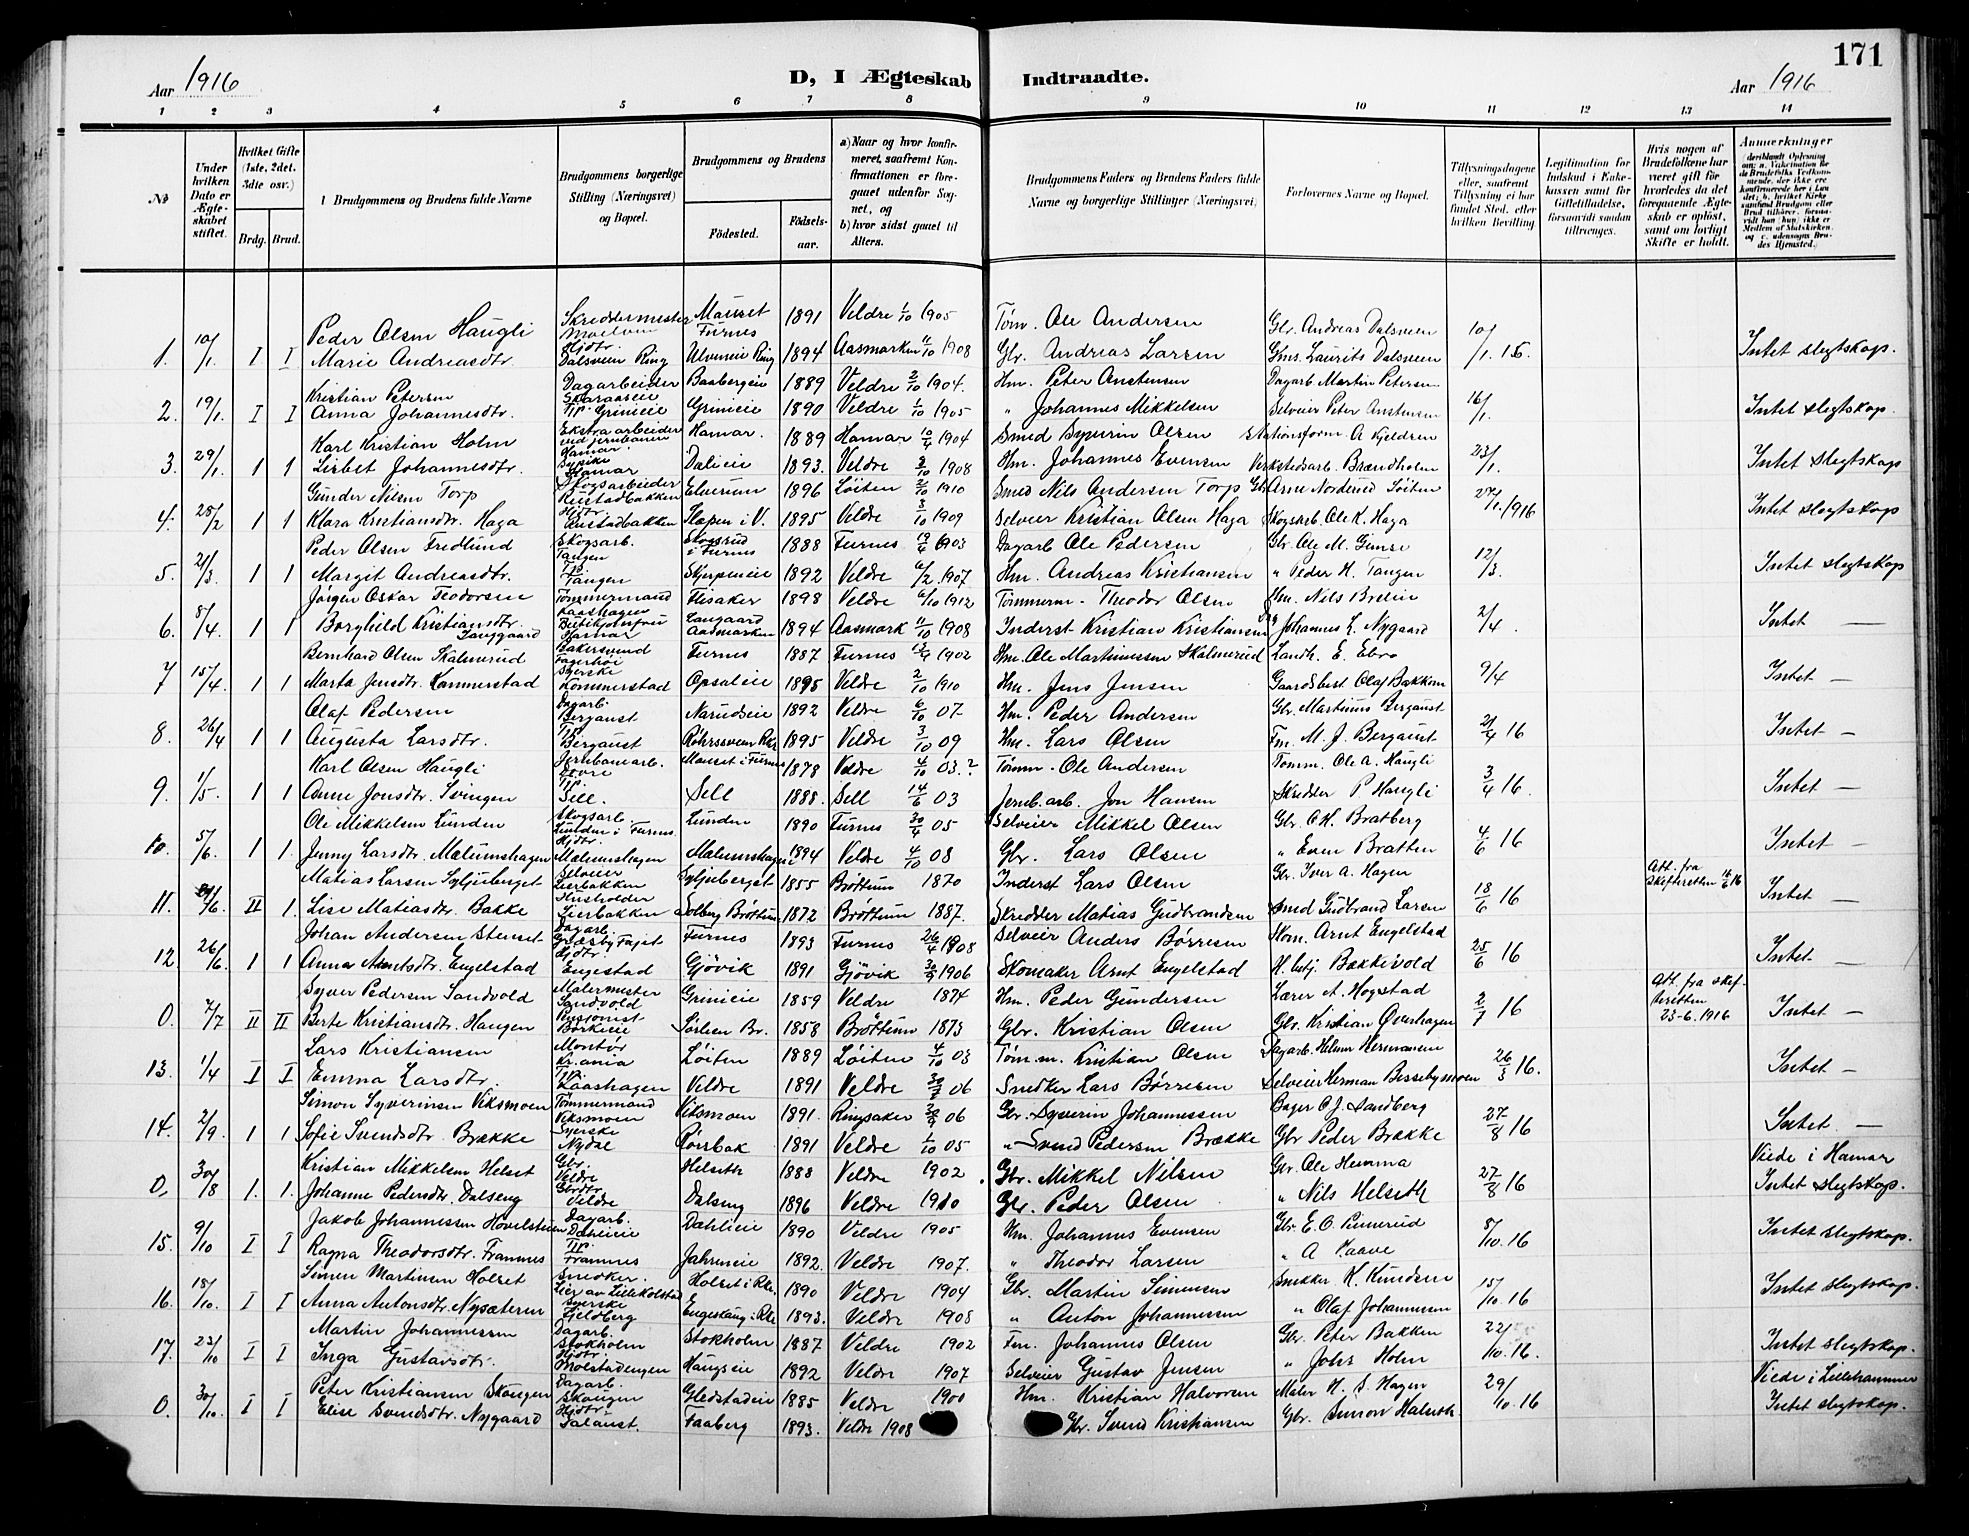 171
Aar 1916
D, I Ægteskab Indtraadte.
Aar 1916
1 2 3 4 5 6 7 8 9 10 11 12 13 14
No
Under hvilken Dato er Ægteskabet stiftet.
Hvilket Gifte (1ste, 2det, 3dte osv.)
Brdg. Brud.
Brudgommens og Brudens fulde Navne
Brudgommens borgerlige Stilling (Næringsvei) og Bopæl.
Brudgommens og Brudens
Fødested.
Fødselsaar.
a) Naar og hvor konfirmeret, saafremt Konfirmationen er foregaaet udenfor Sognet, og
b) hvor sidst gaaet til Alters.
Brudgommens Faders og Brudens Faders fulde Navne og borgerlige Stillinger (Næringsvei)
Forlovernes Navne og Bopæl.
Tillysningsdagene eller, saafremt Tillysning ei har fundet Sted, efter hvilken Bevilling
Legitimation for Indskud i Enkekassen samt for Giftetilladelse, forsaavidt saadan tiltrænges.
Hvis nogen af Brudefolkene har været gift før hvorledes da det foregaaende Ægteskab er opløst, samt om lovligt Skifte er holdt.
Anmerkninger
Peder Olsen Haugli Skreddermester Moelven Mauset Furnes 1891 Veldre 1/10 1905 Tøm. Ole Andersen Gbr. Andreas Dalsveen
1. 10/1. I I Marie Andreasdtr. Hjdtr. Dalsveen Ring Ulveneie Ring 1894 Aasmarken 11/10 1908 Gbr. Andreas Larsen Gbr. Laurits Dalsveen 10/1. 16. Intet slegtskap.
Kristian Petersen Dagarbeider Baabergeie 1889 Veldre 2/10 1904. Hm. Peter Anstensen Dagarb. Martin Petersen
2. 19/1. I I Anna Johannesdtr. Tp. Grinieie Grinieie 1890 Veldre 1/10 1905 " Johannes Mikkelsen Selveier Peter Anstensen 16/1. Intet slegtskap.
Karl Kristian Holm Ekstraarbeider ved jernbanen Hamar Hamar. 1889 Hamar 10/4 1904 Smed Syverin Olsen Stationsform. A Kjeldsen
3. 29/1. 1 1 Lisbet Johannesdtr. Sypike Hamar Dalieie 1893. Veldre 3/10 1908 Hm. Johannes Evensen Verkstedsarb. Brændholm 23/1. Intet slegtskap
Gunder Nilsen Torp Skogsarbeider Rustadbakken Elverum 1896 Løiten 2/10 1910 Smed Nils Andersen Torp Gbr. Arne Norderud Løiten
4. 28/2 1 1 Klara Kristiansdtr. Haga Hjdtr. Rustadbakken Slapen i V. 1895 Veldre 3/10 1909 Selveier Kristian Olsen Haga Skogsarb. Ole K. Haga 27/1. 1916 Intet slegtskap
Peder Olsen Fredlund Skogsarb. Tangen Skogsrud i Furnes 1888 Furnes 19/4 1903 Dagarb Ole Pedersen Gbr. Ole M. Gimse
5. 21/3. 1 1 Margit Andreasdtr. Tp. Tangen Skjerpeneie 1892 Veldre 6/2 1907 Hm. Andreas Kristiansen " Peder H. Tangen 12/3. Intet slegtskap
Jørgen Oskar Teodorsen Tømmermand Laashagen Flisaker 1898 Veldre 6/10 1912 Tømmerm. Theodor Olsen Hm. Nils Brelie
6. 8/4. 1 1 Borghild Kristiansdtr. Langgaard Hamar Langaard Aasmarken 1894 Aasmark 11/10 1908 Inderst Kristian Kristiansen Johannes L. Nygaard 2/4. Intet —
Bernhard Olsen Skalmerud Bakersvend Fagerhøi Furnes 1887 Furnes 13/4 1902 Hm. Ole Martinussen Skalmerud Landh. E. Ebro
7 15/4. 1 1 Marta Jensdtr. Kammerstad Syerske Kommerstad Opsaleie 1895 Veldre 2/10 1910 Hm. Jens Jensen Gaardsbest. Olaf Bakken 9/4 Intet —
Olaf Pedersen Dagarb. Bergaust Narudseie 1892 Veldre 6/10 07 Hm. Peder Andersen Gbr. Martinius Bergaust
8. 26/4 1 1 Augusta Larsdtr. Tp. Bergaust Røhrssveen Rkr. 1895 Veldre 3/10 09 Hm. Lars Olsen Fm. M. J. Bergaust 21/4 16 Intet —
Karl Olsen Haugli Jernbanearb. Dovre Mauset i Furnes 1878 Veldre 4/10 03.? Tømm. Ole Andersen Tømm. Ole A. Haugli
9. 1/5. 1 1 Anne Jonsdtr. Svingen Tp. Sell. Sell 1888. Sell 14/6 03 Jernb. arb. Jon Hansen Skredder P Haugli 3/4 16. Intet —
Ole Mikkelsen Lunden Skogsarb. Lunden i Furnes Lunden 1890 Furnes 30/4 05 Selveier Mikkel Olsen Gbr. O H. Bratberg
10. 5/6. 1 1. Jenny Larsdtr. Mælumshagen Hjdtr. Mælumshagen Mælumshagen 1894 Veldre 4/10 08 Gbr. Lars Olsen " Even Bratten 4/6 16 Intet —
Matias Larsen Syljuberget Selveier Lierbakken Syljuberget 1855 Brøttum 1870 Inderst Lars Olsen Gbr. Iver A. Hagen Att. fra Skifteretten 16/6 16
11. /6. II 1. Lise Matiasdtr. Bakke Husholder Lierbakken Solberg Brøttum 1872 Brøttum 1887. Skredder Matias Gudbrandsen Smed Gudbrand Larsen 18/6 16 Intet —
Johan Andersen Stenset Dagarb. Græsby Fajet Furnes 1893 Furnes 26/4 1908 Selveier Anders Børresen Skom. Arnt Engelstad
12. 26/6. 1 1 Anna Arntsdtr. Engelstad Hjdtr. Engestad Gjøvik 1891 Gjøvik 30/9 1906 Skomaker Arnt Engelstad H. betj. Bakkevold 25/6 16 Intet —
Syver Pedersen Sandvold Malermester Sandvold Grinieie 1859 Veldre 1874 Hm. Peder Gundersen Lærer A. Hogstad Att. fra skifteretten 23-6. 1916
0. 7/7 II II Berte Kristiansdtr. Haugen Pensjonist Børkeeie Sørlien Br. 1858 Brøttum 1873 Gbr. Kristian Olsen Gbr. Kristian Øverhagen 2/7 16 Intet —
Lars Kristiansen Montør Kr.ania Løiten 1889 Løiten 4/10 03 Tøm. m. Kristian Olsen Dagarb. Helmer Hermansen
13. 1/4 I I Emma Larsdtr. Tp. Laashagen Veldre 1891 Veldre 30/2 06 Snedker Lars Børresen Selveier Herman Bessebymoen 26/3 16. Intet —
Simon Syverinsen Viksmoen Tømmermand Viksmoen Viksmoen 1891. Ringsaker 30/9 06 Gbr. Syverin Johannessen Bager O J. Sandberg
14. 2/9. 1 1 Sofie Svendsdtr. Brække Syerske Nydal Rørrbak 1891 Veldre 1/10 05 " Svend Pedersen Brække Gbr Peder Brække 27/8 16 Intet —
Kristian Mikkelsen Helset Gbr. Veldre Helseth 1888 Veldre 1902 Gbr. Mikkel Nilsen Gbr. Ole Hemma Viede i Hamar
0, 30/8 1. 1. Johanne Pedersdtr. Dalseng Gbrdtr. Veldre Dalseng 1896 Veldre 1910 Gbr. Peder Olsen " Nils Helseth 27/8 16 Intet slegtskap.
Jakob Johannessen Hovelsteien Dagarb. Dahlieie Dahlieie 1890 Veldre 1905 Hm. Johannes Evensen Gbr. E. O. Pinnerud
15. 9/10 I I Ragna Theodorsdtr. Framnes Tp. Framnes Jahreneie 1892. Veldre 1907. " Theodor Larsen " A Haave 8/10. 16 Intet slegtskap.
Simen Martinsen Holset Snedker. Eier av Lillekolstad Holset i Rkr. 1890 Veldre 1904 Gbr. Martin Simensen Snekker K. Knudsen
16. 18/10. I I Anna Antonsdtr. Nysæteren Syerske Kjeldberg Engeskaug i Rkr. 1893. Veldre 1908 " Anton Johannessen " Olaf Johannessen 15/10. 16 Intet slegtskap.
Martin Johannessen Dagarb. Stokholm Stokholm 1887 Veldre 1902 Fm. Johannes Olsen Gbr. Peter Bakken
17. 23/10 I I Inga Gustavsdtr. Hjdtr. Molstadengen Haugseie 1892 Veldre 1907 Selveier Gustav Jensen " Johs Holm 22/10. 16. Intet slegtskap.
Peter Kristiansen Skaugen Dagarb. Skaugen Gledstadeie 1885 Veldre 1900 Hm. Kristian Halvorsen Maler H. S. Hagen Viede i Lillehammer
0. 30/10. I I Elise Svendsdtr. Nygaard Hjdtr. Salaust. Faaberg 1893. Veldre 1908 Gbr. Svend Kristiansen Gbr. Simon Halseth 29/10. 16 Intet slegtskap.